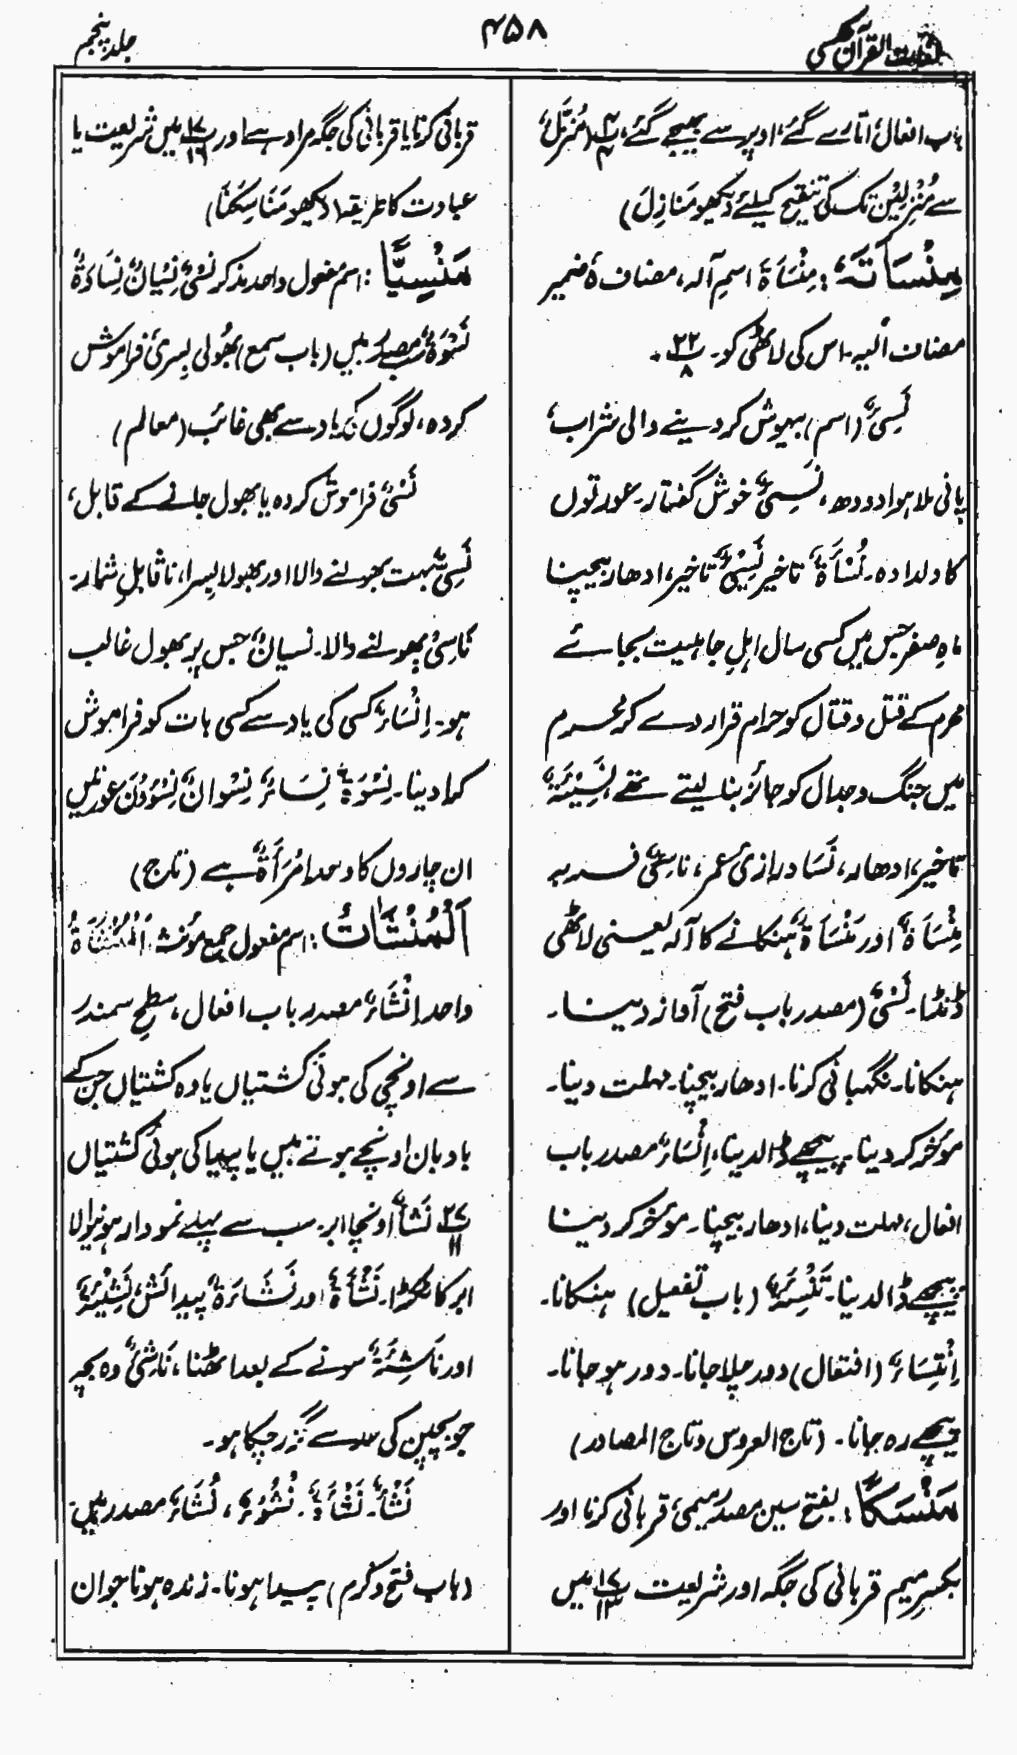 لغات القرآن
۴۵۸
جلد پنجم
باب افعال اتارے گئے، اوپر سے بھیجے گئے، (مُنْزَلٌ
سے مُنْزِلِیْن تک کی تنقیح کیلئے دیکھو مَنَازِلَ)
مِنْسَاَتَہٗ: مِنْسَاَۃَ اسمِ آلہ، مضاف ہٗ ضمیر
مضاف الیہ۔ اس کی لاٹھی کو۔ ۲۲/۸
نَسِیْءٌ (اسم) بیہوش کر دینے والی شراب،
پانی ملا ہوا دودھ، نَسِیْءٌ خوش گفتار۔ عورتوں
کا دلدادہ۔ نُسْأَۃٌ تاخیر نَسِیْءٌ تاخیر، ادھار بیچنا
ماہِ صفر جس میں کسی سال اہلِ جاہلیت بجائے
محرم کے قتل و قتال کو حرام قرار دے کر محرم
میں جنگ و جدال کو جائز بنا لیتے تھے نَسِیْئَۃٌ
تاخیر، ادھار، نَسَاء درازیٔ عمر، ناسِیٌٔ فربہ
مِنْسَاَۃٌ اور مَنْسَاَۃٌ ہنکانے کا آلہ یعنی لاٹھی
ڈنڈا۔ نَسْیٌٔ (مصدر باب فتح) آواز دینا۔
ہنکانا۔ نگہبانی کرنا۔ ادھار بیچنا۔ مہلت دینا۔
مؤخر کر دینا۔ پیچھے ڈالدینا، اِنْسَاءٌ مصدر باب
افعال، مہلت دینا، ادھار بیچنا۔ مؤخر کر دینا
پیچھے ڈالدینا۔ تَنْسِئَۃٌ (باب تفعیل) ہنکانا۔
اِنْتِسَاءٌ (افتعال) دور چلا جانا۔ دور ہو جانا۔
پیچھے رہ جانا۔ (تاج العروس و تاج المصادر)
مَنْسَکًا: بفتح سین مصدر میمی، قربانی کرنا اور
بکسر میم قربانی کی جگہ اور شریعت ۱۷/۱۲ میں
قربانی کرنا یا قربانی کی جگہ مراد ہے اور ۱۷/۱۶ میں شریعت یا
عبادت کا طریقہ (دیکھو مَنَاسِکَنَا)
مَنْسِیًّا: اسم مفعول واحد مذکر نَسْیٌ، نِسْیَانٌ، نِسَاوَۃٌ
نَسْوَۃٌ مصدر ہیں (باب سمع) بھُولی بِسری، فراموش
کردہ، لوگوں کی یاد سے بھی غائب (معالم)
نَسْیٌ فراموش کردہ یا بھول جانے کے قابل،
نَسِیٌّ بہت بھولنے والا اور بھولا بِسرا، ناقابلِ شمار۔
نَاسِیْ بھولنے والا۔ نسیانٌ جس پر بھول غالب
ہو۔ اِنْسَاءٌ کسی کی یاد سے کسی بات کو فراموش
کرا دینا۔ نِسْوَۃٌ نِسَاءٌ نِسْوانٌ نِسْوُدْنَ عورتیں
ان چاروں کا واحد اِمْرَأَۃٌ ہے (تاج)
اَلْمُنْشَاٰتُ: اسم مفعول جمع مؤنث، اَلْمُنْشَاَۃُ
واحد اِنْشَاءٌ مصدر باب افعال، سطحِ سمندر
سے اونچی کی ہوئی کشتیاں یا وہ کشتیاں جن کے
بادبان اونچے ہوتے ہیں یا پیدا کی ہوئی کشتیاں
۲۷/۱۱ نَشَأٌ اونچا ابر۔ سب سے پہلے نمودار ہونیوالا
ابر کا ٹکڑا۔ نَشْأَۃٌ اور نَشَاءَۃٌ پیدائش، نَشِیْئَۃٌ
اور نَاشِئَۃٌ سونے کے بعد اٹھنا، نَاشِیٌٔ وہ بچہ
جو بچپن کی حد سے گذر چکا ہو۔
نَشْأٌ۔ نَشْأَۃٌ۔ نُشُوْءٌ، نَشَاءٌ مصدر ہیں۔
(باب فتح و کرم) پیدا ہونا۔ زندہ ہونا جوان